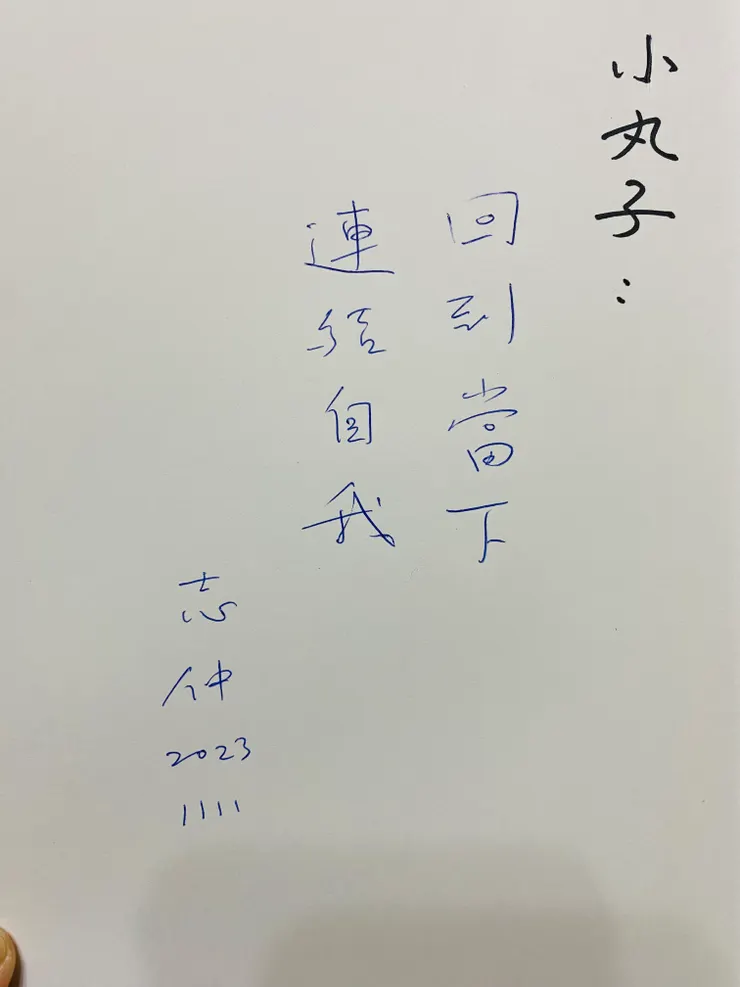 小丸子：
回到當下
連結自我
志仲
2023
1111